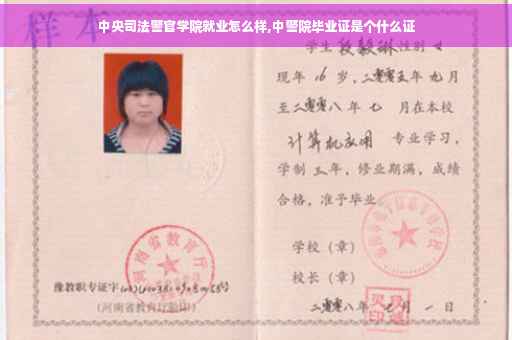 中央司法警官学院就业怎么样,中警院毕业证是个什么证
样本
学生 段毅琳 性别 女
现年 16 岁,二零零五年 九月
至二零零八年 七 月在本校
计算机应用 专业学习,
学制 三 年,修业期满,成绩
合格,准予毕业
学校(章)
校长(章)
河南省教育厅
豫教职专证字
(河南省教育厅验印)
二零零八年 七 月 一 日